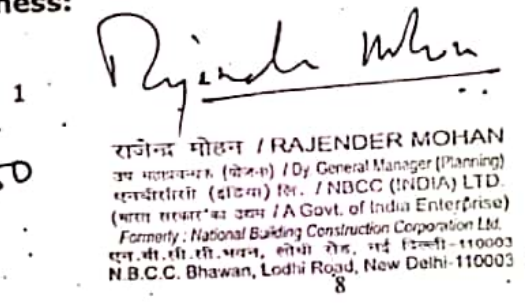 ness:
1
Rajender Mohan
राजेन्द्र मोहन / RAJENDER MOHAN
उप महाप्रबन्धक (योजना) / Dy. General Manager (Planning)
एनबीसीसी (इंडिया) लि. / NBCC (INDIA) LTD.
(भारत सरकार का उद्यम / A Govt. of India Enterprise)
Formerly : National Building Construction Corporation Ltd.
एन.बी.सी.सी. भवन, लोधी रोड, नई दिल्ली-110003
N.B.C.C. Bhawan, Lodhi Road, New Delhi-110003
8